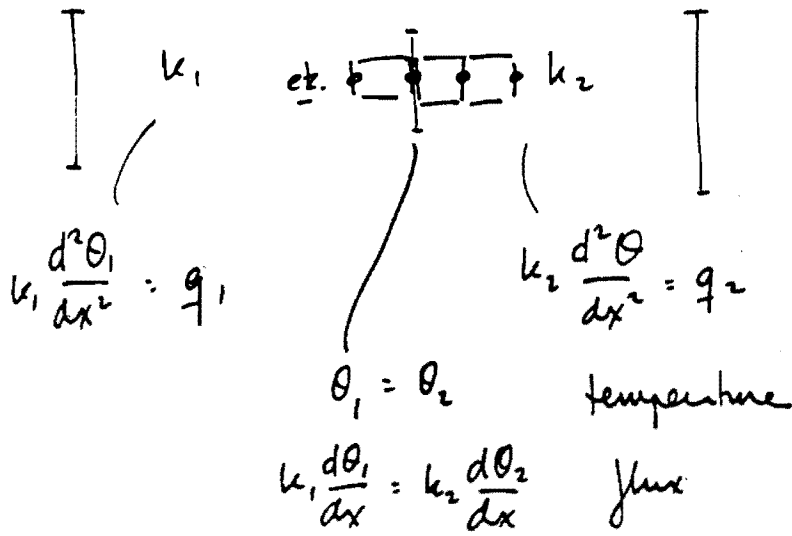 k₁ etc. k₂
k₁ d²θ₁/dx² = q₁ k₂ d²θ/dx² = q₂
θ₁ = θ₂ temperature
k₁ dθ₁/dx = k₂ dθ₂/dx flux